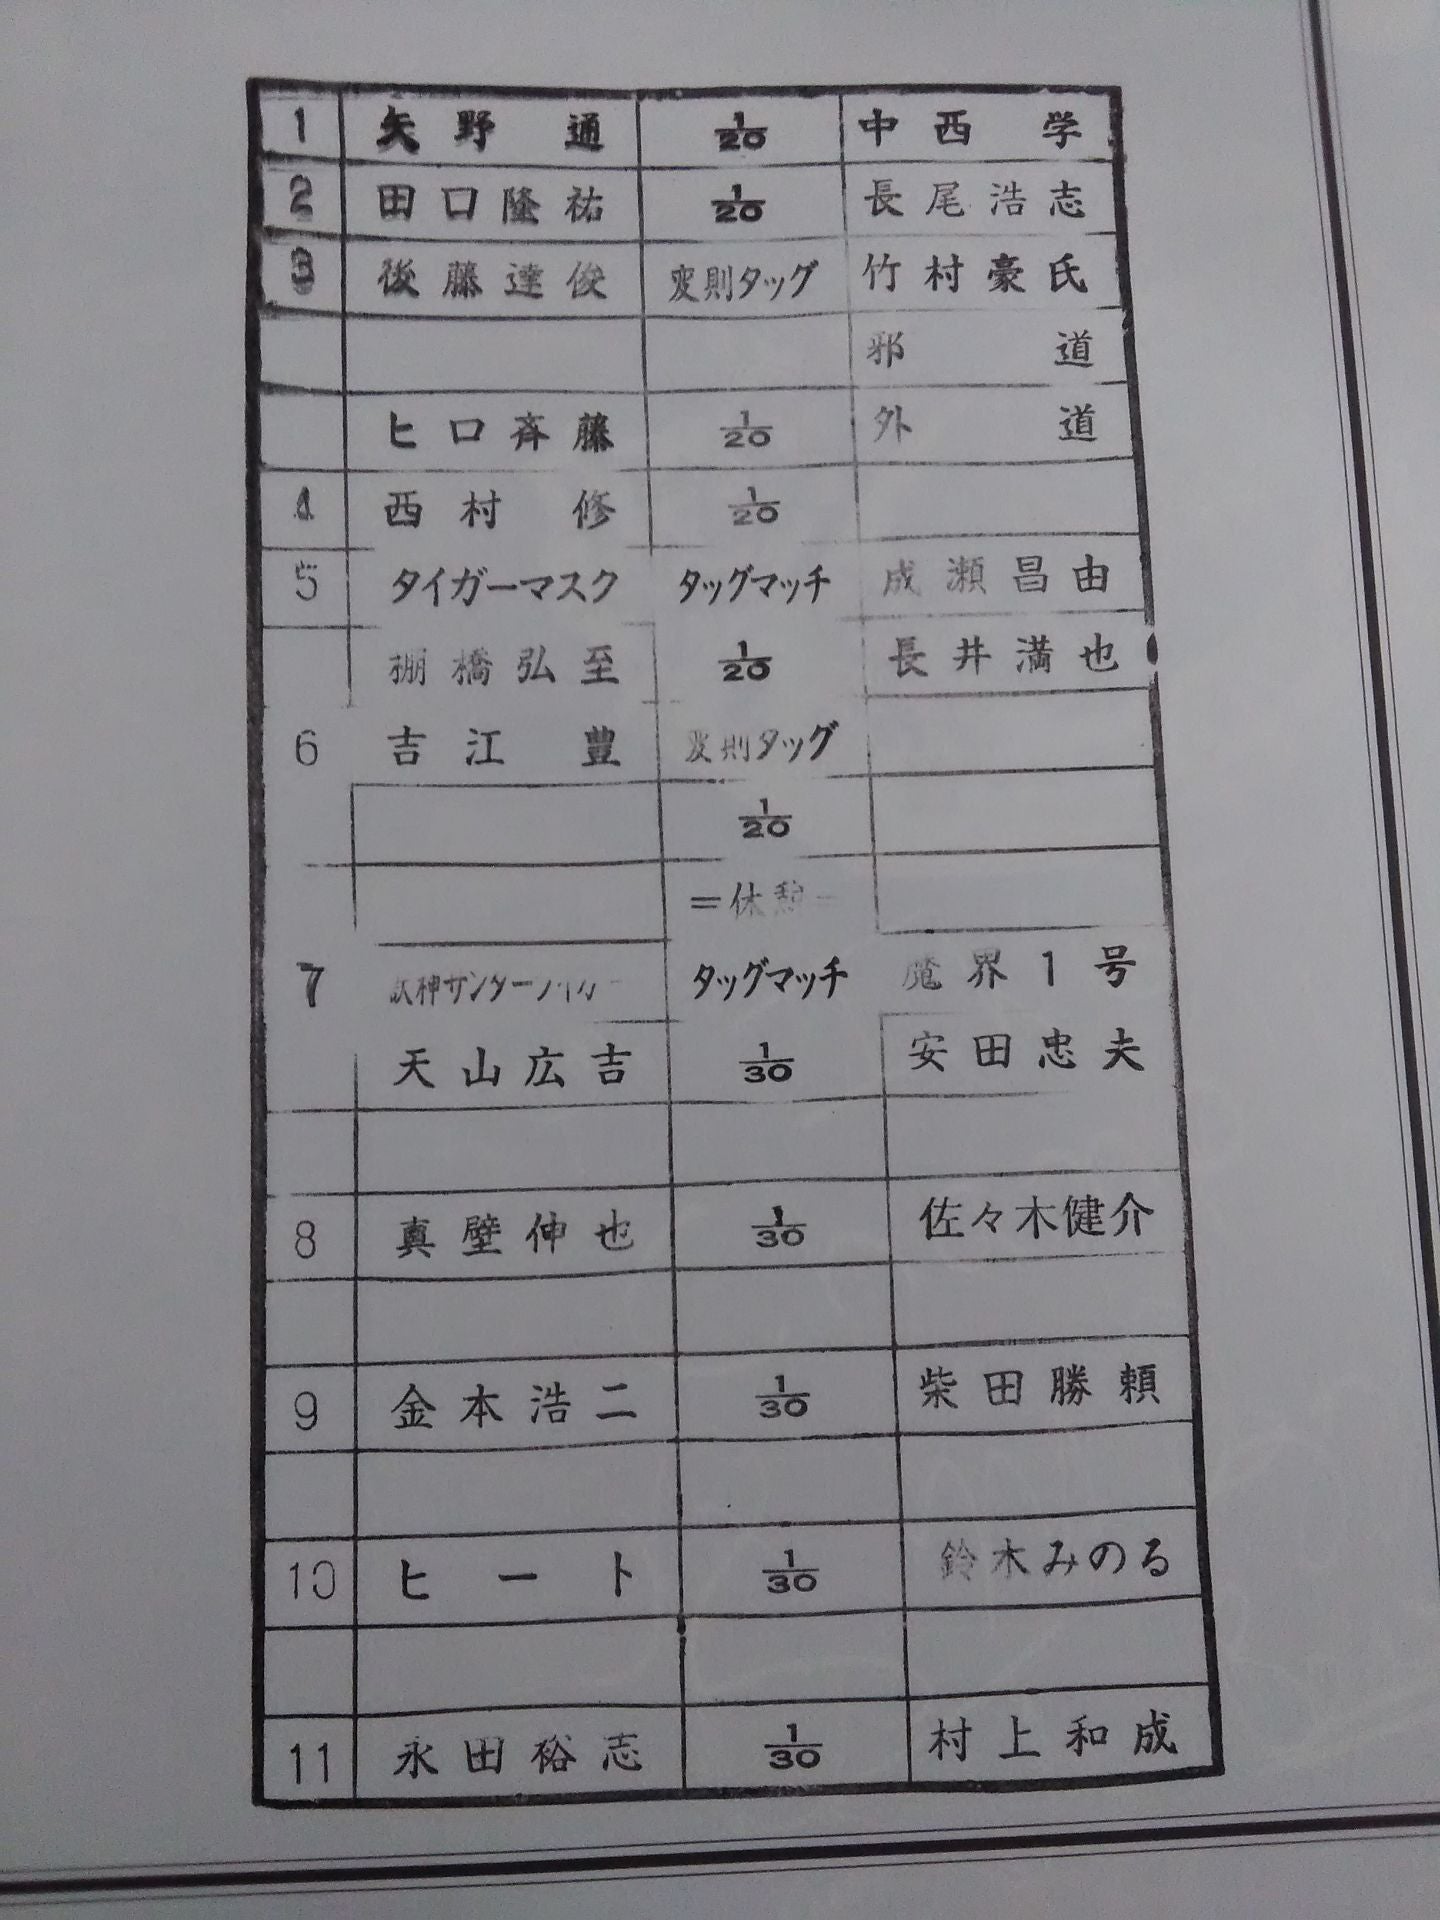 1 矢野通 1/20 中西学
2 田口隆祐 1/20 長尾浩志
3 後藤達俊 変則タッグ 竹村豪氏
邪道
ヒロ斉藤 1/20 外道
4 西村修 1/20
5 タイガーマスク タッグマッチ 成瀬昌由
棚橋弘至 1/20 長井満也
6 吉江豊 変則タッグ
1/20
=休憩=
7 獣神サンダーライガー タッグマッチ 魔界1号
天山広吉 1/30 安田忠夫
8 真壁伸也 1/30 佐々木健介
9 金本浩二 1/30 柴田勝頼
10 ヒート 1/30 鈴木みのる
11 永田裕志 1/30 村上和成